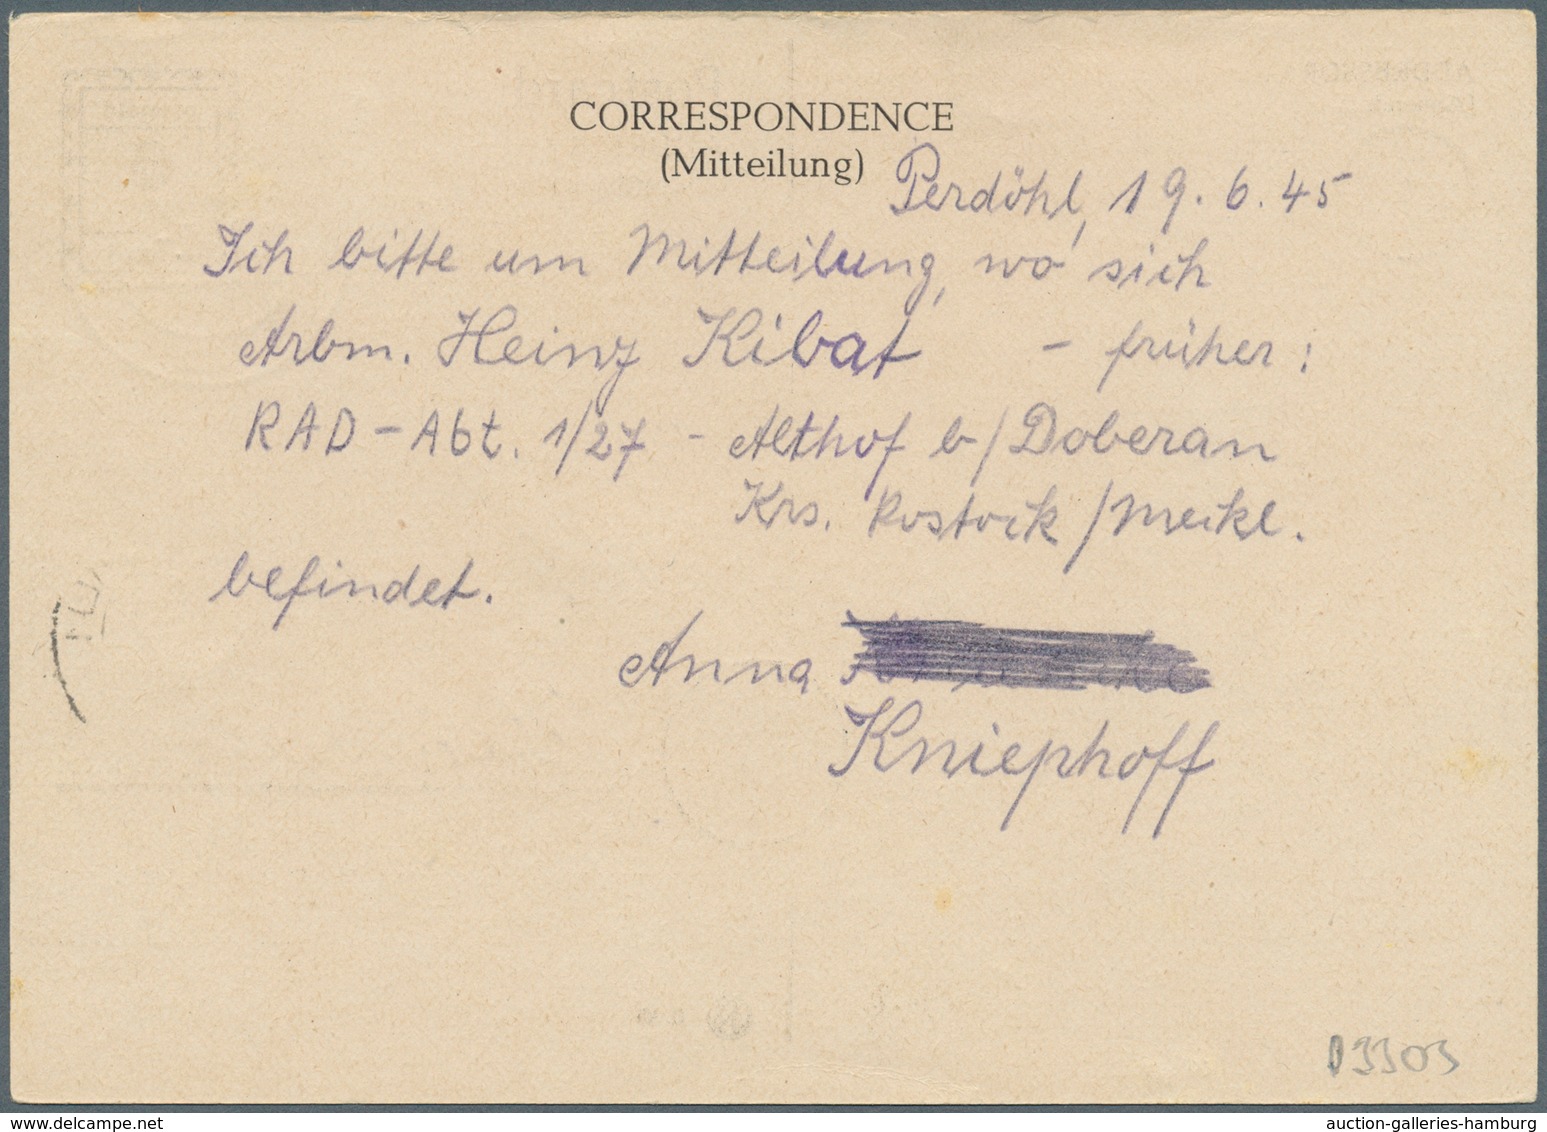 CORRESPONDENCE
(Mitteilung)
Perdöhl, 19. 6. 45
Ich bitte um Mitteilung, wo sich
Arbm. Heinz Kibat - früher:
RAD - Abt. 1/27 - Althof b/Doberan
Krs. Rostock/Meckl.
befindet.
Anna
Kniephoff
03303
auction-galleries-hamburg